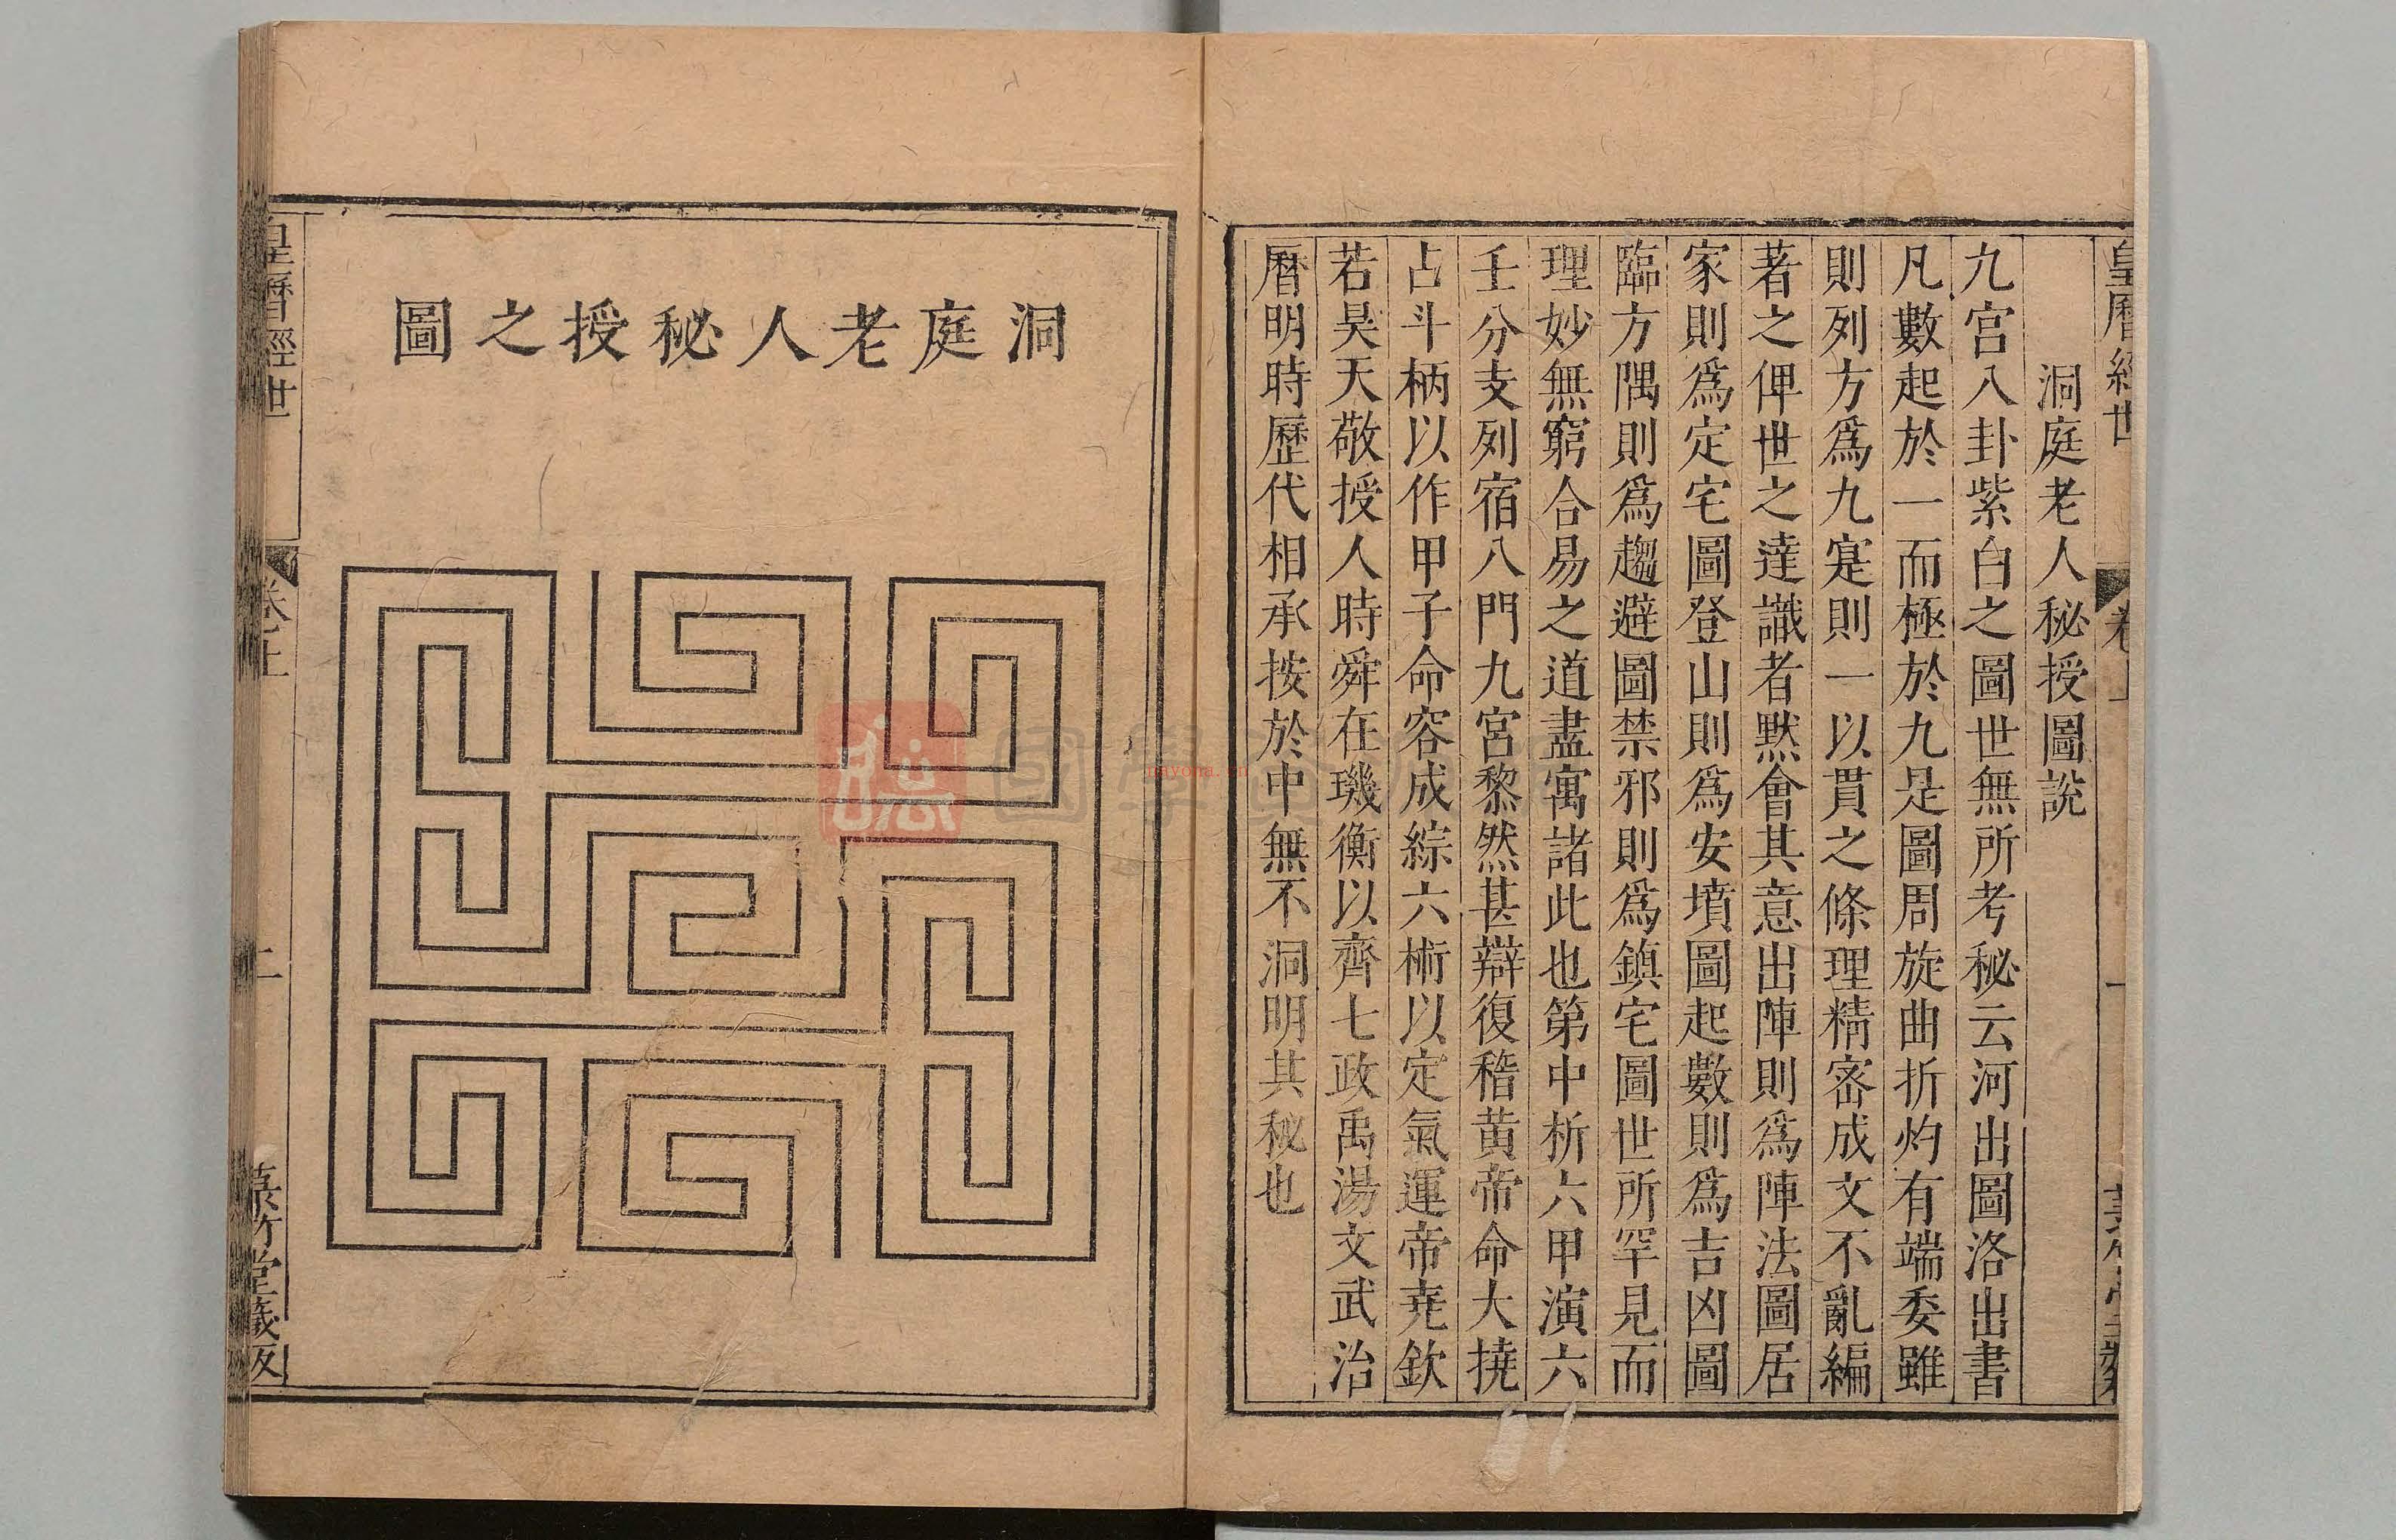 皇曆經世
卷上
一
洞庭老人秘授圖說
九宮八卦紫白之圖世無所考秘云河出圖洛出書
凡數起於一而極於九是圖周旋曲折灼有端委雖
則列方爲九寔則一以貫之條理精密成文不亂編
著之俾世之達識者黙會其意出陣則爲陣法圖居
家則爲定宅圖登山則爲安墳圖起數則爲吉凶圖
臨方隅則爲趨避圖禁邪則爲鎮宅圖世所罕見而
理妙無窮合易之道盡寓諸此也第中析六甲演六
壬分支列宿八門九宮黎然甚辯復稽黄帝命大撓
占斗柄以作甲子命容成綜六術以定氣運帝堯欽
若昊天敬授人時舜在璣衡以齊七政禹湯文武治
曆明時歷代相承按於中無不洞明其秘也
洞庭老人秘授之圖
皇曆經世
卷上
二
菉竹堂藏板
國學
nayona.cn